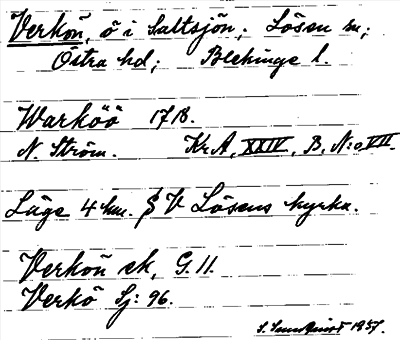 Verkön, ö i Saltsjön; Lösen sn;
Östra hd; Blekinge l.
Warköö 1718.
N. Ström. Kr.A, XXIV, B, N:o VII.
Läge 4 km. S V Lösens kyrka.
Verkön ek, G. 11.
Verkö Sj: 96.
1937.